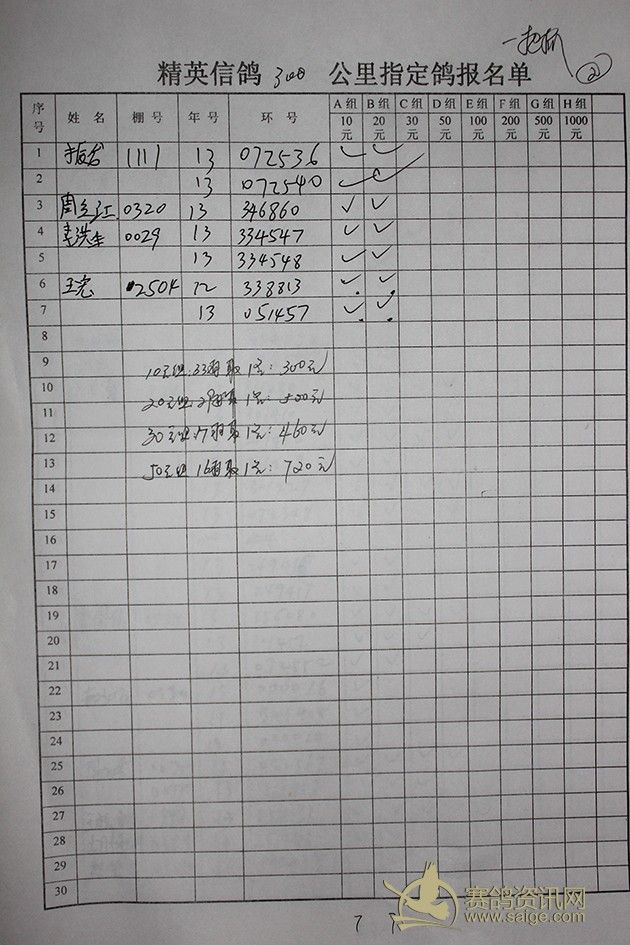 一把抓 ②
精英信鸽 300 公里指定鸽报名单
序号 姓名 棚号 年号 环号 A组 B组 C组 D组 E组 F组 G组 H组
10元 20元 30元 50元 100元 200元 500元 1000元
1 1111 13 072536 ✓ ✓
2 13 072540 ✓ ✓
3 0320 13 346860 ✓ ✓
4 李洪生 0029 13 334547 ✓ ✓
5 13 334548 ✓ ✓
6 王亮 2504 12 338813 ✓ ✓
7 13 051457 ✓ ✓
8
9
10元组:33羽取1名:300元
10
20元组:29羽取1名:500元
11
12
30元组:17羽取1名:460元
13
50元组 16羽取1名:720元
14
15
16
17
18
19
20
21
22
23
24
25
26
27
28
29
30
7
赛鸽资讯网
www.saige.com